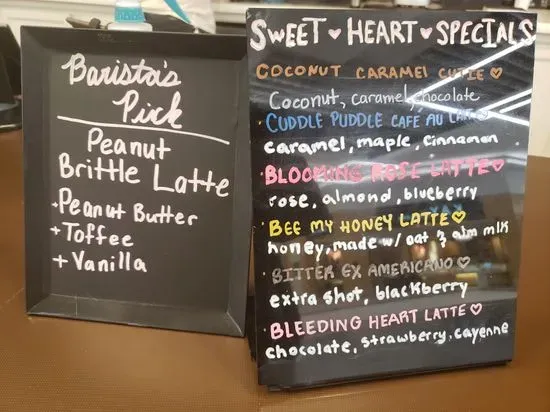 Barista's
Pick
Peanut
Brittle Latte
+Peanut Butter
+Toffee
+Vanilla
SWEET ♥ HEART ♥ SPECIALS
COCONUT CARAMEL CUTIE ♡
Coconut, caramel, chocolate
· CUDDLE PUDDLE CAFE AU LAIT ♡
caramel, maple, cinnamon
· BLOOMING ROSE LATTE ♡
rose, almond, blueberry
· BEE MY HONEY LATTE ♡
honey, made w/ oat & alm milk
· BITTER EX AMERICANO ♡
extra shot, blackberry
· BLEEDING HEART LATTE ♡
chocolate, strawberry, cayenne